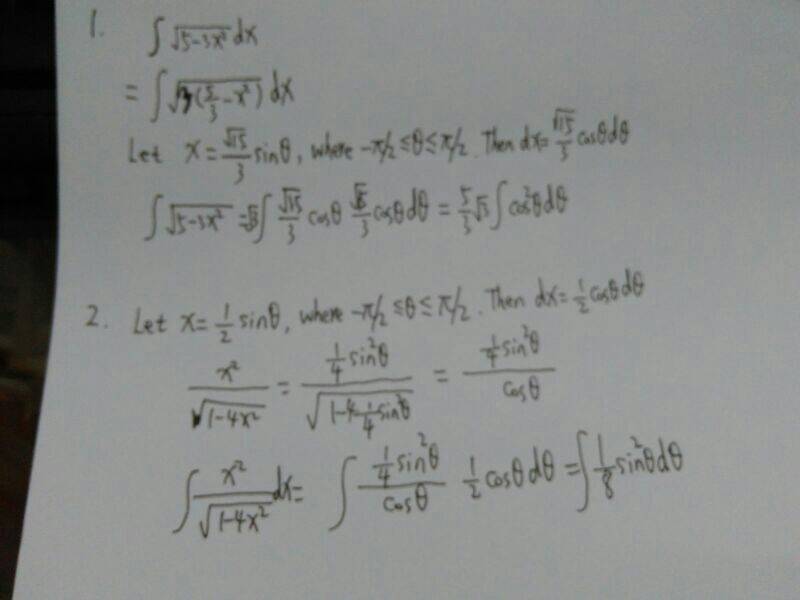 1. ∫ √(5-3x²) dx
= ∫ √(3(5/3 - x²)) dx
Let x = √15/3 sinθ, where -π/2 ≤ θ ≤ π/2. Then dx = √15/3 cosθdθ
∫ √(5-3x²) = √3 ∫ √15/3 cosθ √15/3 cosθdθ = 5/3 √3 ∫ cos²θdθ
2. Let x = 1/2 sinθ, where -π/2 ≤ θ ≤ π/2. Then dx = 1/2 cosθdθ
x²/√(1-4x²) = (1/4 sin²θ)/√(1-4·1/4 sin²θ) = (1/4 sin²θ)/cosθ
∫ x²/√(1-4x²) dx = ∫ (1/4 sin²θ)/cosθ 1/2 cosθdθ = ∫ 1/8 sin²θdθ